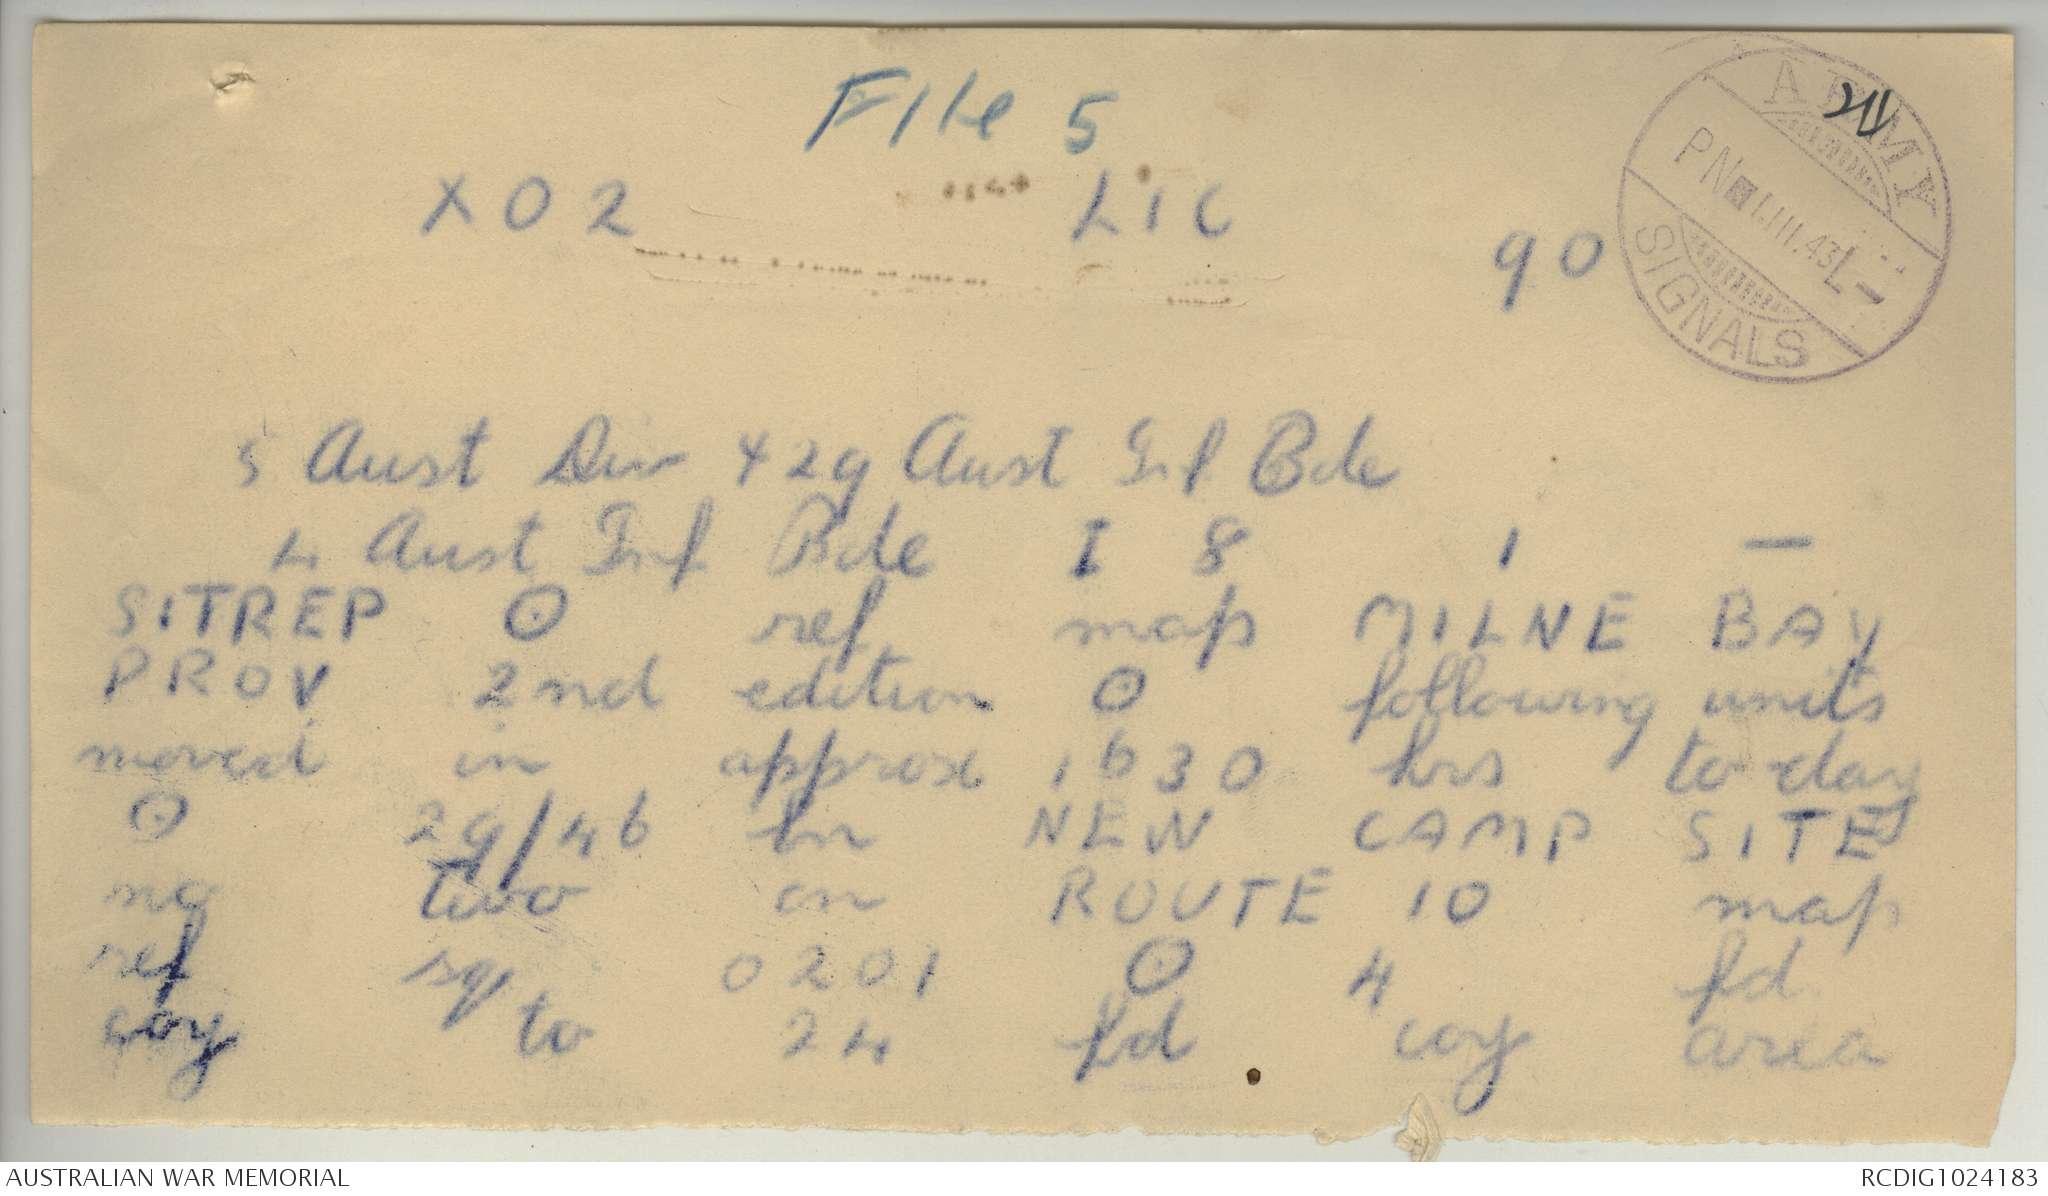 File 5
ARMY
SIGNALS
PN 1.III.43
XO2 LIC
90
5 Aust Div 4 29 Aust Inf Bde
4 Aust Inf Bde I 8 1 —
SITREP ⊙ ref map MILNE BAY
PROV 2nd edition ⊙ following units
moved in approx 1630 hrs to-day
⊙ 29/46 bn NEW CAMP SITE
no two on ROUTE 10 map
ref sq 0201 ⊙ 4 fd
coy to 24 fd coy area
AUSTRALIAN WAR MEMORIAL
RCDIG1024183